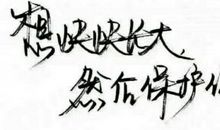 想快快长大,
然后保护